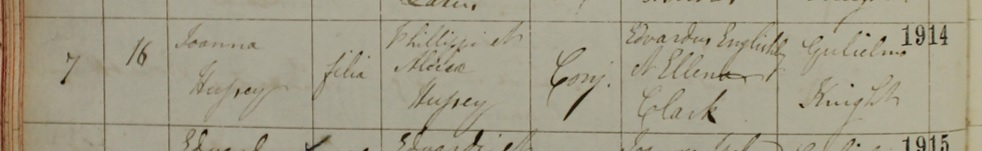 7 16 Joanna Hussey filia Phillippi et Aliciæ Hussey Conj. Edvardus English et Ellena Clark Gulielmus Knight 1914
Edvard Edvardi et 1915